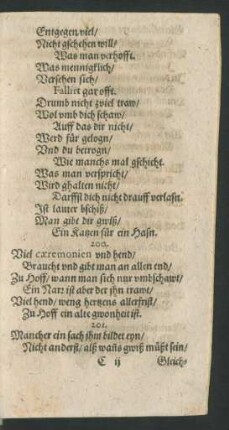 Entgegen viel/
Nicht gschehen will/
Was man verhofft.
Was menniglich/
Versehen sich/
Falliert gar offt.
Drumb nicht zviel traw/
Wol vmb dich schaw/
Auff das dir nicht/
Werd für gelogn/
Vnd du betrogn/
Wie manchs mal gschicht.
Was man verspricht/
Wird ghalten nicht/
Darffst dich nicht drauff verlasn.
Ist lauter bschiß/
Man gibt dir gwiß/
Ein Katzen für ein Hasn.
200.
Viel cæremonien vnd hend/
Braucht vnd gibt man an allen end/
Zu Hoff/ wann man sich nur vmbschawt/
Ein Narr ist aber der ihn trawt/
Viel hend/ weng hertzens allerfrist/
Zu Hoff ein alte gwonheit ist.
201.
Mancher ein sach ihm bildet eyn/
Nicht anderst/ alß wañs gwiß müßt sein/
C ij Gleich-